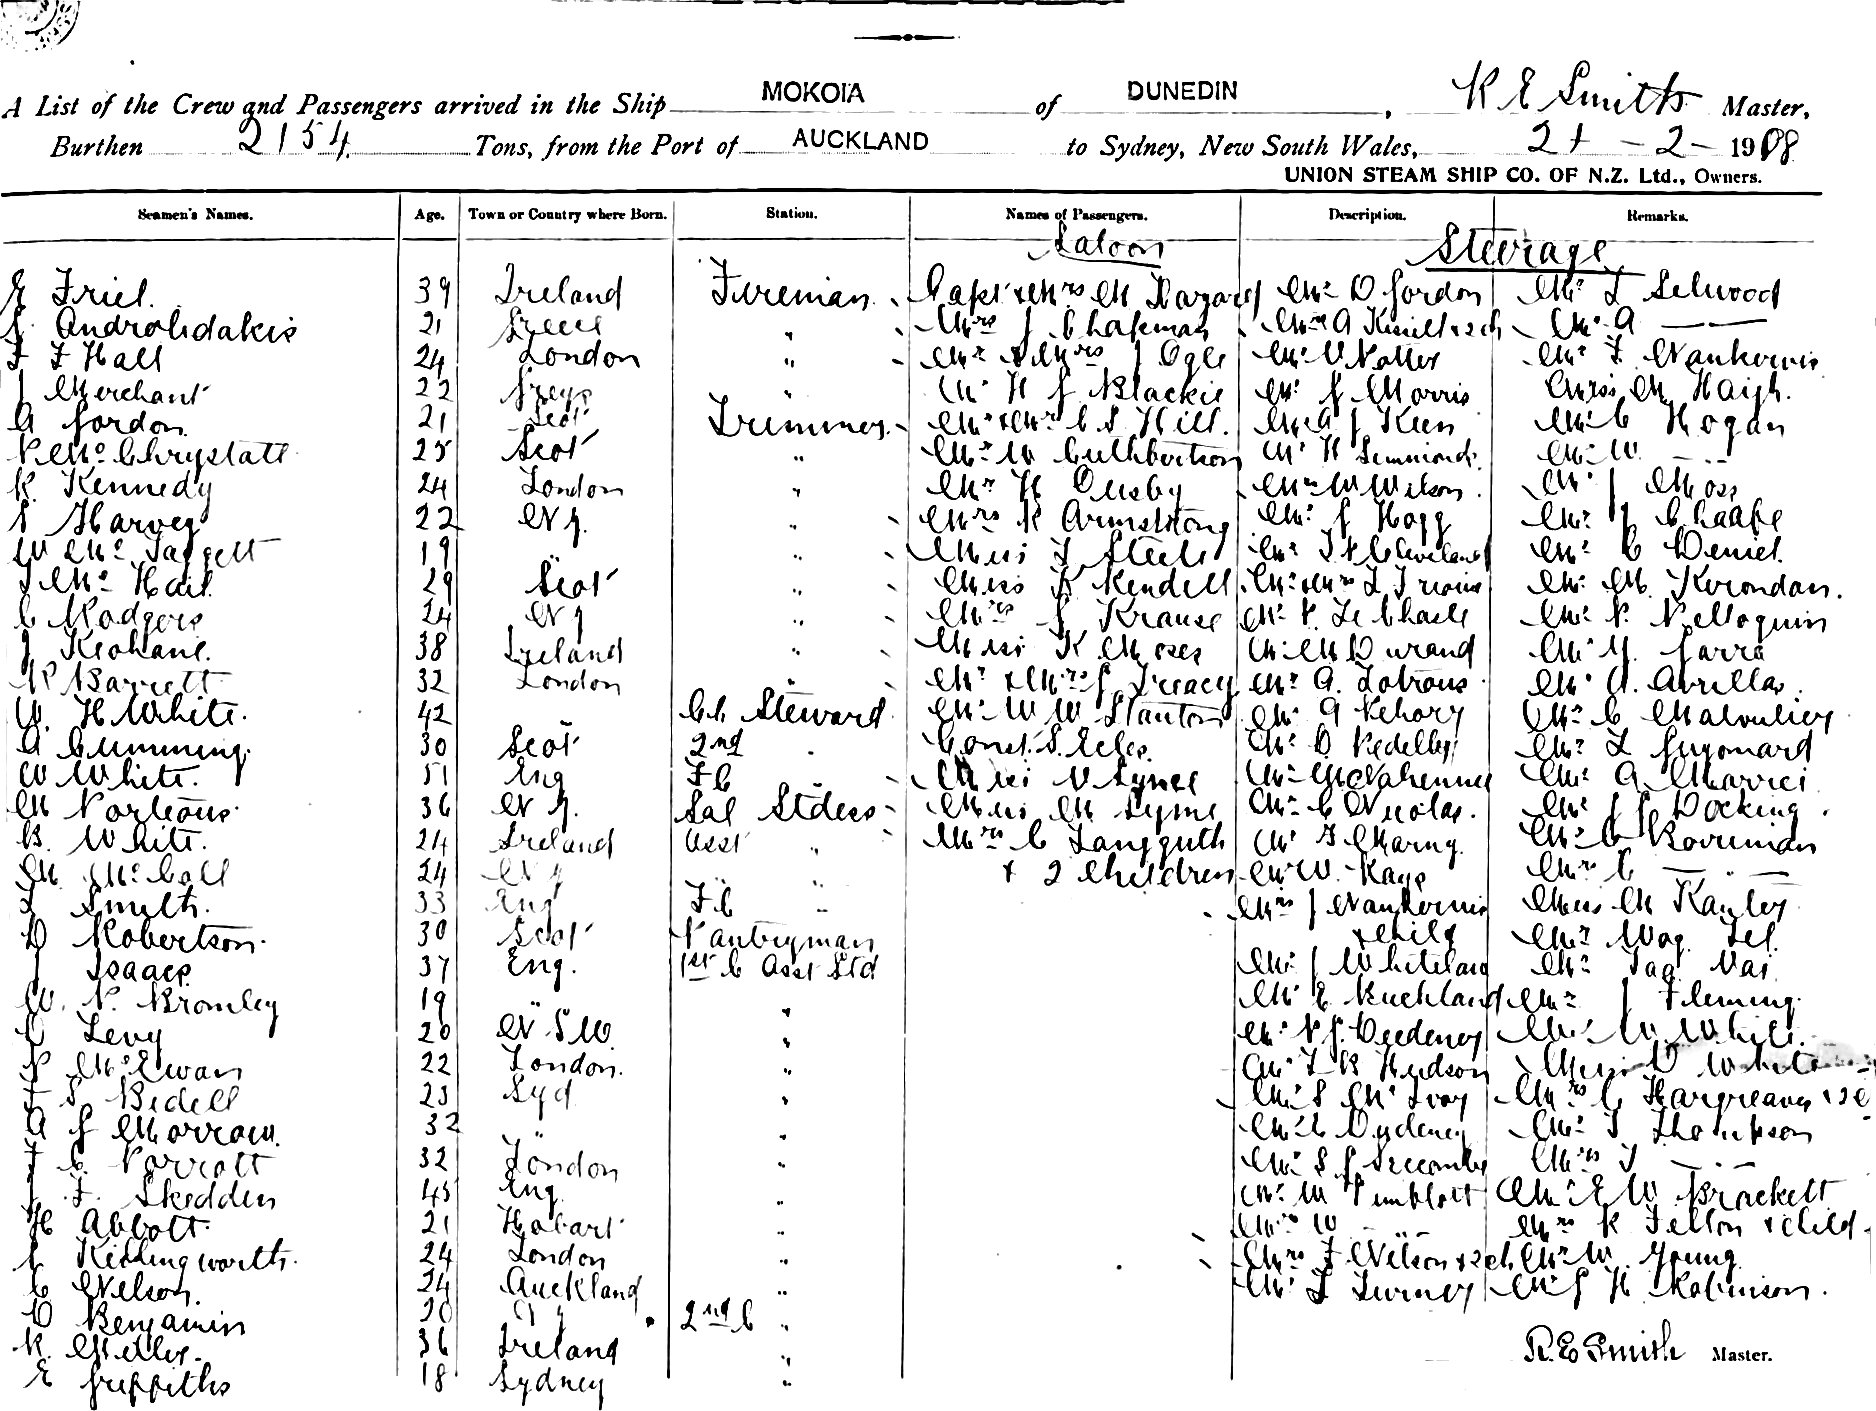 A List of the Crew and Passengers arrived in the Ship MOKOIA of DUNEDIN, R E Smith Master,
Burthen 2154 Tons, from the Port of AUCKLAND to Sydney, New South Wales, 2 - 2 - 1908
UNION STEAM SHIP CO. OF N.Z. Ltd., Owners.
Seamen's Names. Age. Town or Country where Born. Station. Names of Passengers. Description. Remarks.
Saloon Steerage
E Friel. 39 Ireland Fireman Capt & Mrs M Hazard Mr D Gordon Mr L Selwood
Androlidakis 21 Greece " Mrs J Chapman Mrs A & 2 ch Mr A — —
F F Hall 24 London " Mr & Mrs J Ogle Mr V Mr F
J Merchant 22 " Mr H G Blackie Mr G Morris Miss M Haigh.
A Gordon 21 Scot Trimmer Mr & Mrs C S Hill. Mr A J Keen Mr C Hogan
P McChrystall 25 Scot " Mr W Cuthbertson Mr H Simmonds. Mr W. — —
R. Kennedy 24 London " Mr H Ousby Mr W Wilson. Mr J Moss
Harvey 22 N Z. " Mrs R Armstrong Mr G Hogg Mr J
W McTaggett 19 " " Miss L Steele Mr Cleveland Mr C Deniel.
Mc Hail 29 Scot " Miss Kendell Mr & Mrs L Mr M. Kerondan.
C Rodgers 24 N Z " Mrs G Krause Mr P. Mr P. Pelloquin
J Keohane. 38 Ireland " Miss K Moses Mr M Durand Mr Y. Garra
Barrett 32 London " Mr & Mrs G Treacy Mr A. Latrous Mr A. Avrillas.
W. H White. 42 Ch Steward Mr W W Stanton Mr A Kehory Mr C
A Cumming. 30 Scot 2nd " Const. S. Eccles. Mr D Mr L Guyomard
W White. 51 Eng F C Miss V Syme Mr Mr A.
M 36 N Z. Sal Stdess Miss M Syme Mr C Nicolas. Mr J J Docking.
B. White. 24 Ireland Asst " Mrs C Langguth Mr Mr C Boreman
M. McCall 24 N Z " " & 2 Children Mr W. Kaye Mrs C — . —
L Smith. 33 Eng F C " Mrs J Miss M
D Robertson. 30 Scot Pantryman & child Mr Wag. Tel.
J Isaacs 37 Eng. 1st C Asst Std Mr J Whitelaw Mr Vai
W. P. Bromley 19 " " Mr E Buckland Mr J Fleming.
Levy 20 N S W " Mr Mr W. White.
McEwan 22 London. " Mr L B Hudson Miss D White
S. Bedell 23 Syd " Mr S McIvor Mrs C Hargreaves & 2 c
A G Morrow. 32 " " Mr C Dydeney Mr T Thompson
C. Parrott 32 London " Mr S J Seccombe Mrs T — . —
J. F. Skedden 45 Eng. " Mr W Pimblott Mr E W Brackett
H Abbott. 21 Hobart " Mrs W — " — Mrs R Felton & child
Killingworth. 24 London " Mrs F Nilson & 2 ch Mr W. Young
C Nelson. 24 Auckland " Mr L Turney Mr G H Robinson.
D Benjamin 20 2nd C "
R. Miller. 36 Ireland " R. E Smith Master.
E Griffiths 18 Sydney "